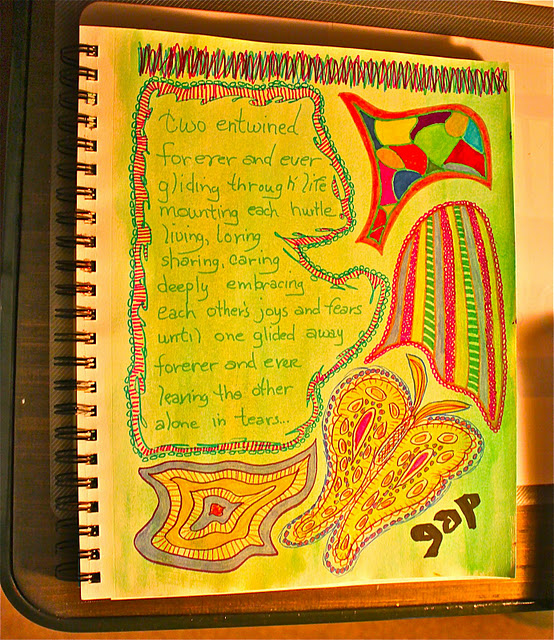 two entwined
forever and ever
gliding through life
mounting each hurtle
living, loving
sharing, caring
deeply embracing
each other's joys and fears
until one glided away
forever and ever
leaving the other
alone in tears...
gap